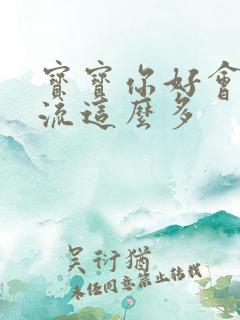 寶寶你好會
流這麼多
吳衍猶
未經同意禁止轉載